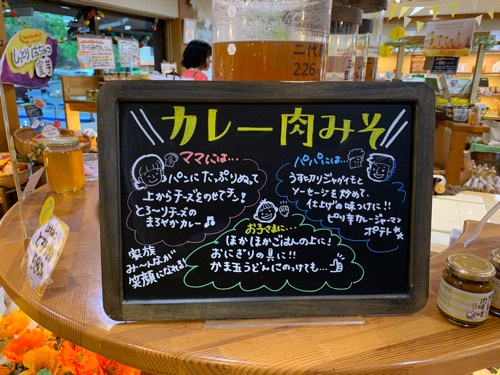 二代
226
\\カレー肉みそ//
ママには…
パンにたっぷりぬって
上からチーズをのせてチン!
とろーりチーズの
まろやかカレー♪
パパには…
うす切りジャガイモと
ソーセージを炒めて、
仕上げの味つけに!!
ピリ辛カレージャーマン
ポテト
お子さまに…
ほかほかごはんの上に!
おにぎりの具に!!
かま玉うどんにのっけても…
家族
み〜んなが
笑顔になれる!